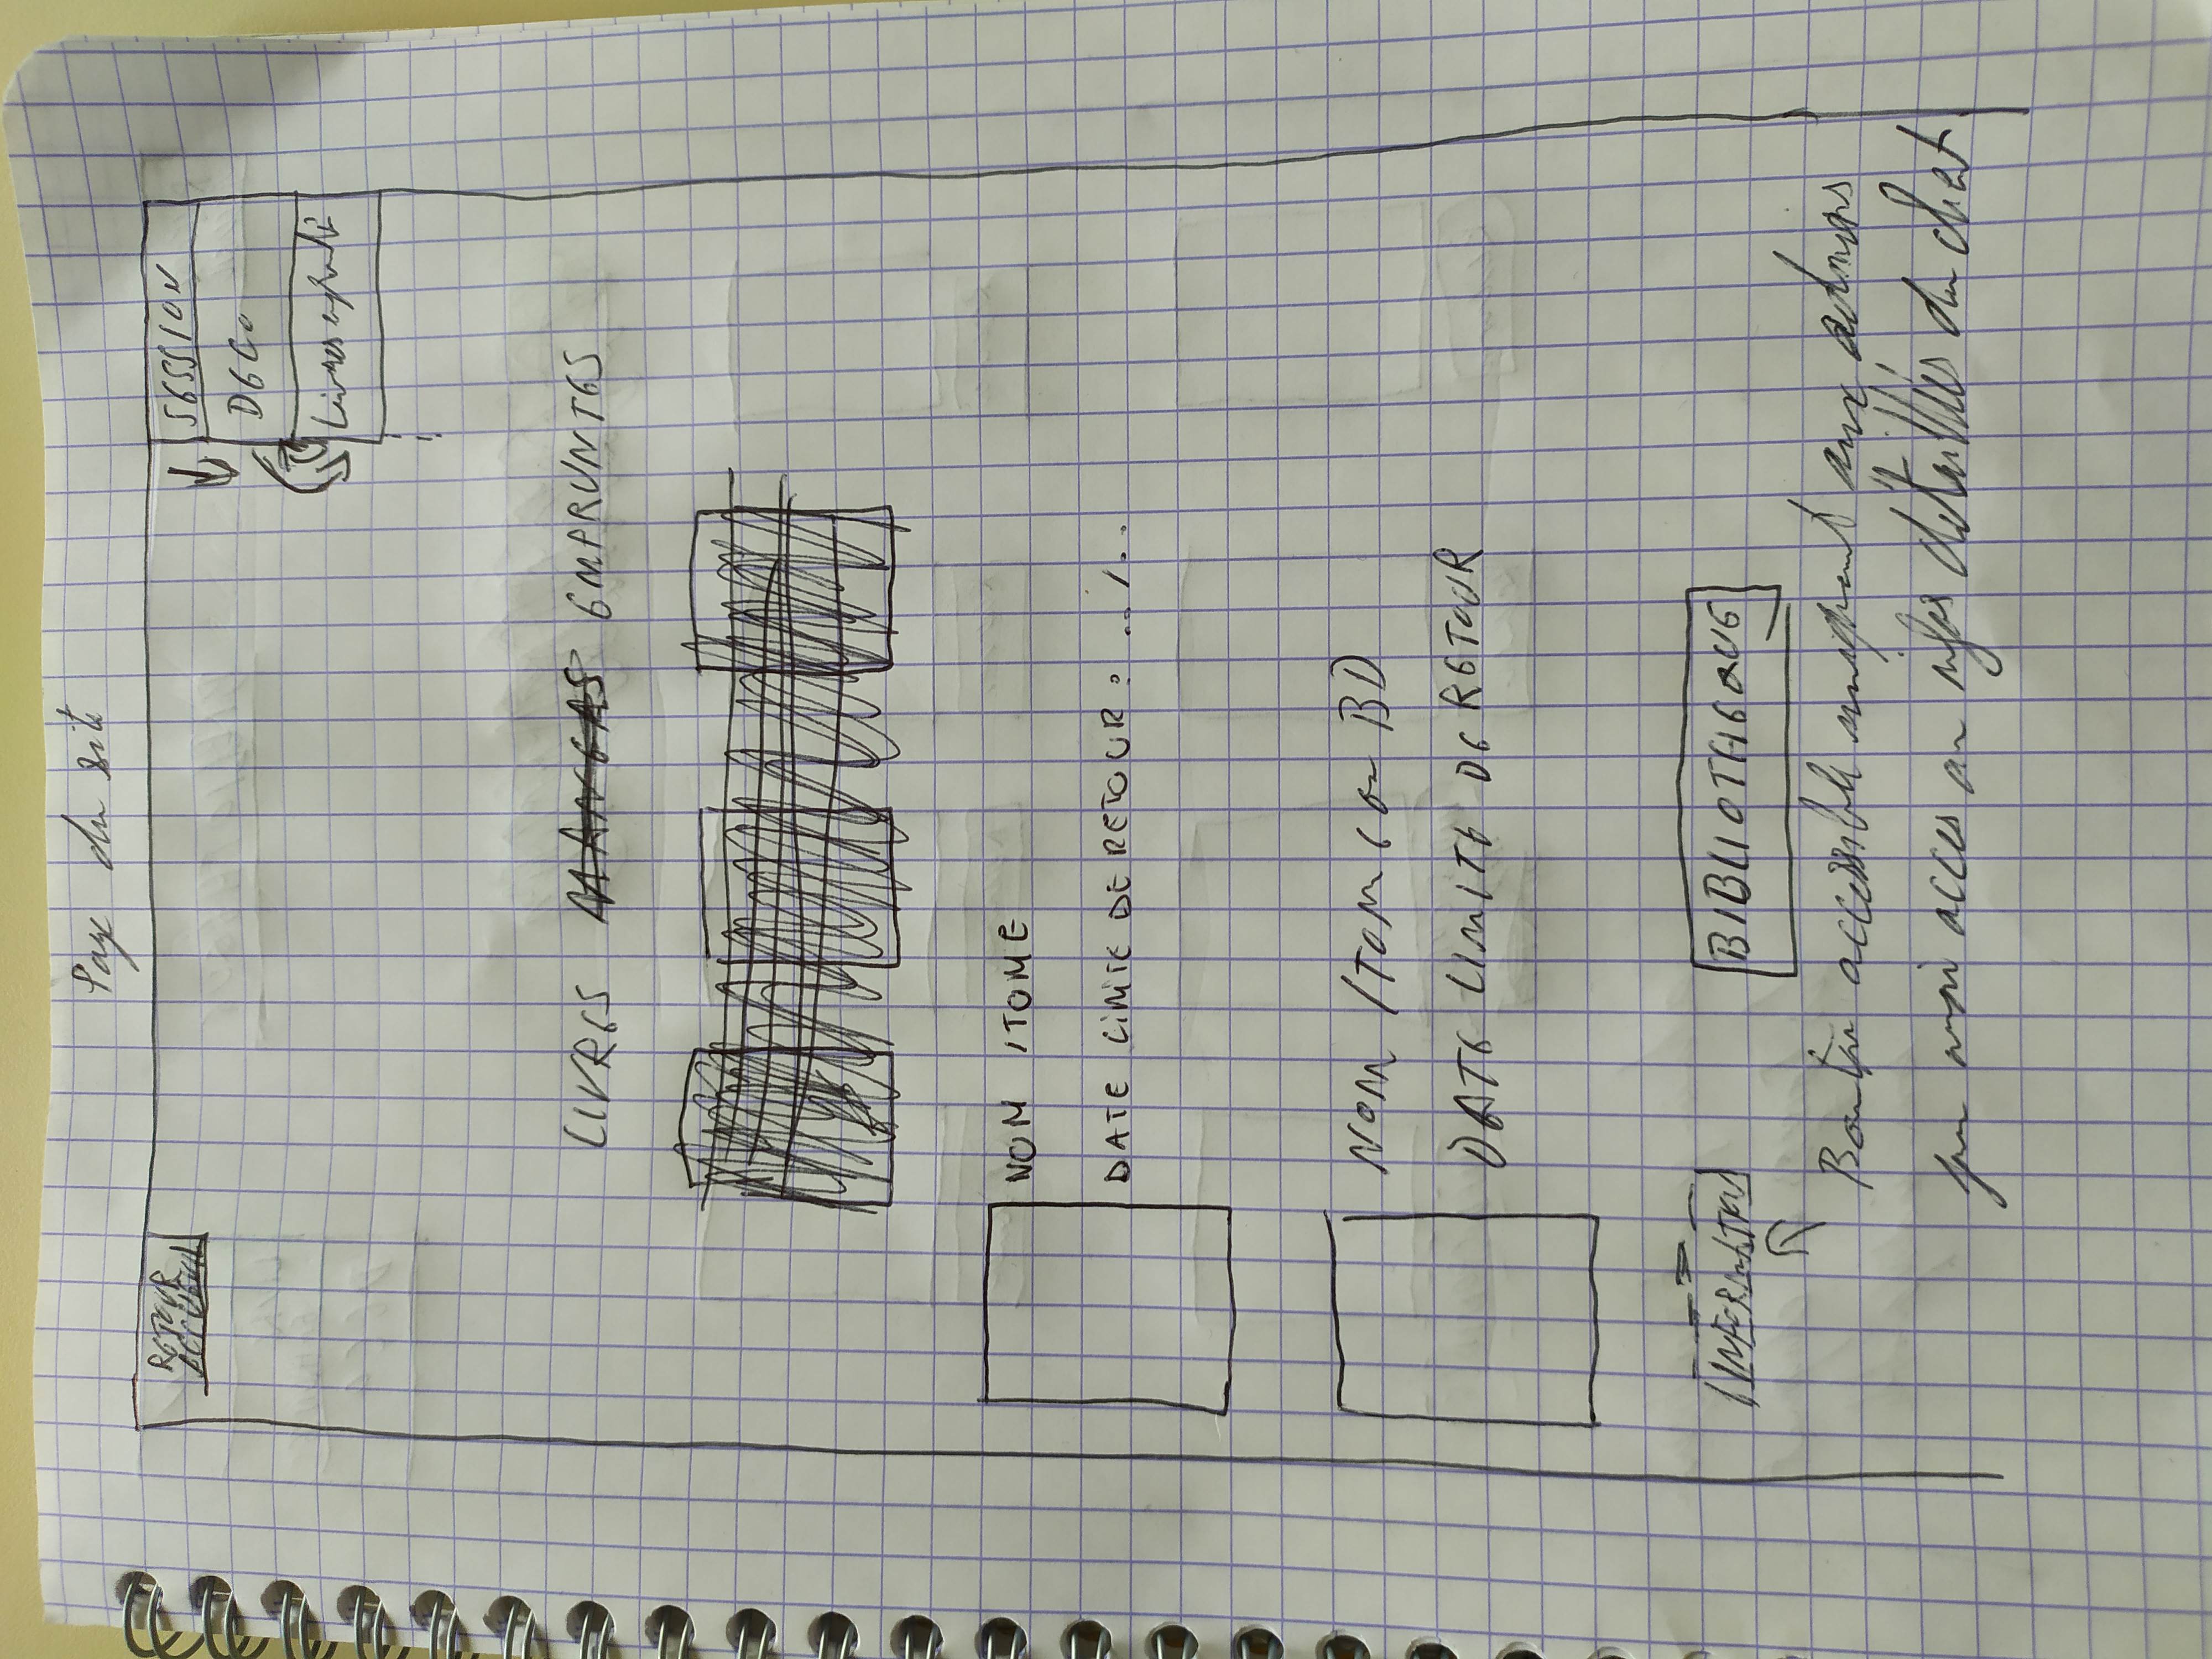 Page du site
RETOUR ACCUEIL
SESSION
DECO
Livres emprunté
LIVRES EMPRUNTES
NOM / TOME
DATE LIMITE DE RETOUR : .. / ..
NOM / TOME or BD
DATE LIMITE DE RETOUR
INFORMATION
BIBLIOTHEQUE
Bouton accessible uniquement aux admins
pour avoir acces au infos détaillés du client